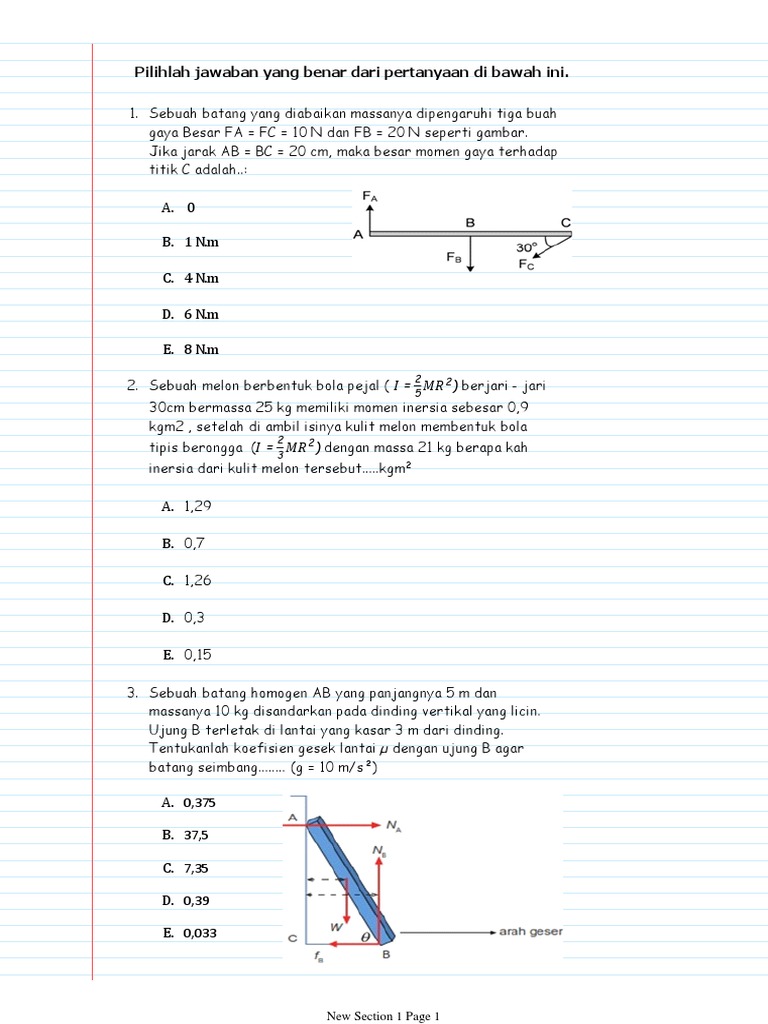 Pilihlah jawaban yang benar dari pertanyaan di bawah ini.
1. Sebuah batang yang diabaikan massanya dipengaruhi tiga buah
gaya Besar FA = FC = 10 N dan FB = 20 N seperti gambar.
Jika jarak AB = BC = 20 cm, maka besar momen gaya terhadap
titik C adalah..:
A. 0
B. 1 N.m
C. 4 N.m
D. 6 N.m
E. 8 N.m
F_A
A
B
C
F_B
30°
F_C
2. Sebuah melon berbentuk bola pejal ( I = 2/5 MR²) berjari - jari
30cm bermassa 25 kg memiliki momen inersia sebesar 0,9
kgm2 , setelah di ambil isinya kulit melon membentuk bola
tipis berongga (I = 2/3 MR²) dengan massa 21 kg berapa kah
inersia dari kulit melon tersebut.....kgm²
A. 1,29
B. 0,7
C. 1,26
D. 0,3
E. 0,15
3. Sebuah batang homogen AB yang panjangnya 5 m dan
massanya 10 kg disandarkan pada dinding vertikal yang licin.
Ujung B terletak di lantai yang kasar 3 m dari dinding.
Tentukanlah koefisien gesek lantai µ dengan ujung B agar
batang seimbang........ (g = 10 m/s²)
A. 0,375
B. 37,5
C. 7,35
D. 0,39
E. 0,033
A
N_A
N_B
W
θ
C
f_B
B
arah geser
New Section 1 Page 1